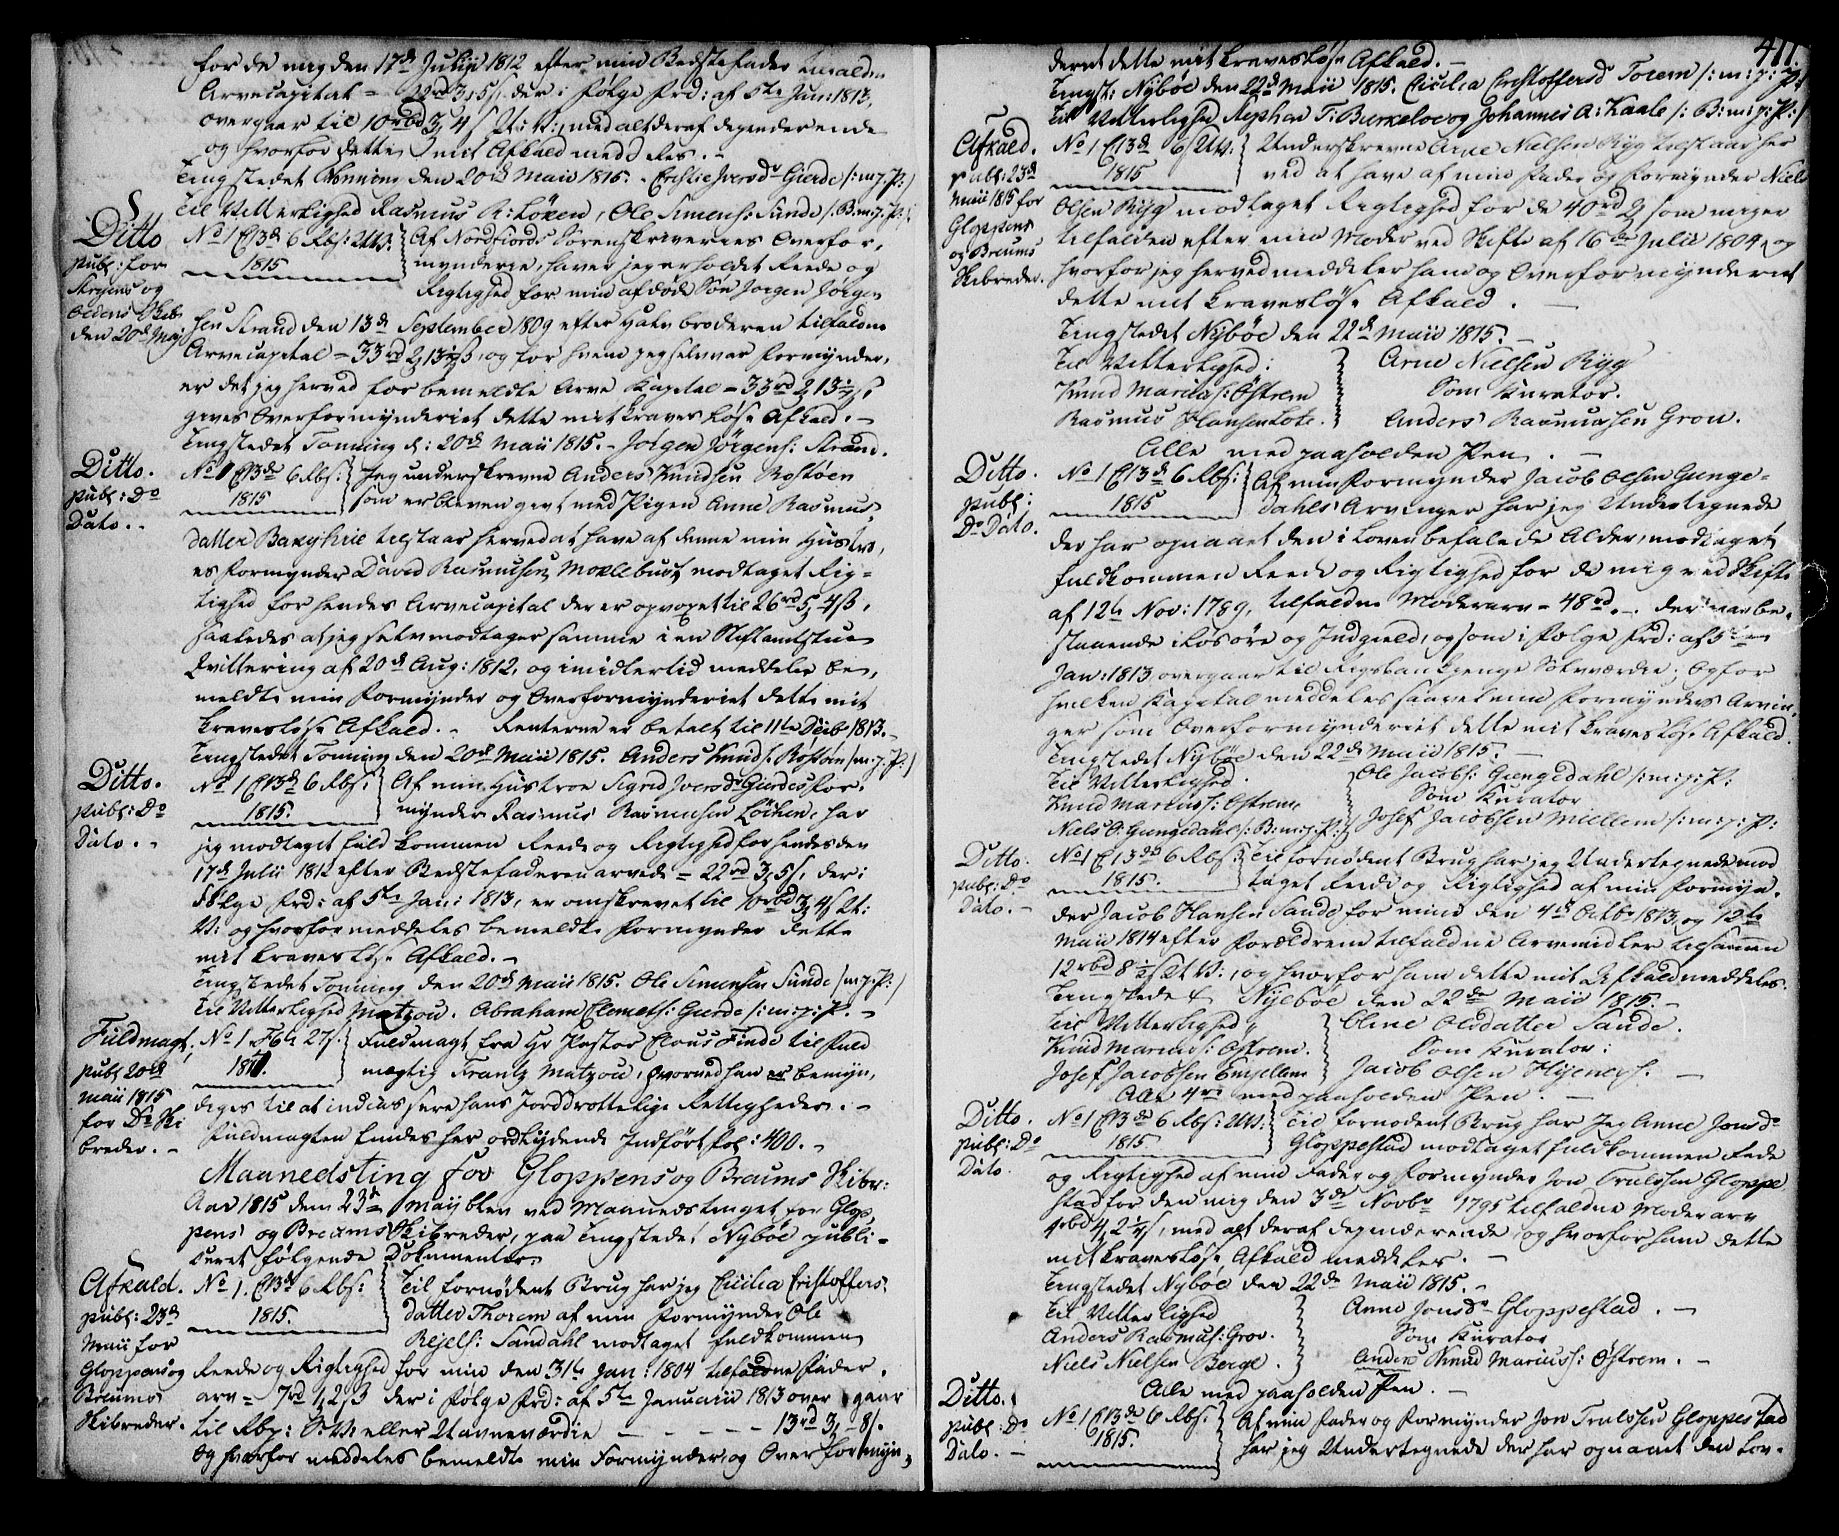 for de mig den 17de Julii 1812 efter min Bedstefader tilfaldne
Arvecapital = 22rd 3, 5s, der i følge Frd: af 5te Jan: 1813,
overgaar til 10rbd 3, 4s N: V:, med alt deraf dependerende
og hvorfor dette mit Afkald meddeles. -
Tingstedet Tonning den 20de Maii 1815. Iversdr Gierde /:m:p:P:/
Til Vitterlighed Rasmus R: Løken, Ole Simens: Sunde /:B:m:p:P:/
Ditto
publ: for
Stryens og
Oldens Skib:
den 20de Maj
No 1 C13de 6 Rbs: N.V.
1815
Af Nordfjords Sorenskriveries Overfor,
mynderie, haver jeg erholdet Reede og
Rigtighed for min afdøde Søn Jørgen Jørgen
sen Strand den 13de September 1809 efter Halvbroderen tilfaldne
Arvecapital = 33rd 2, 13½s, og for hvem jeg selv var Formynder,
er det jeg herved for bemeldte Arve Kapital = 33rd 2, 13½s,
gives Overformynderiet dette mit kravesløse Afkald. -
Tingstedet Tonning d: 20de Maii 1815. - Jørgen Jørgens: Strand.
Ditto.
publ: Do
Dato. -
No 1 C13de 6 Rbs:
1815
Jeg underskrevne Anders Knudsen Rostøen
som er bleven givt med Pigen Anne Rasmus,
datter tilstaar herved at have af denne min Hustro,
es Formynder David Rasmusen Moldebust modtaget Rig=
tighed for hendes Arvecapital der er opvoxet til 26rd 5, 4s,
saaledes at jeg selv modtager samme i en Stiftamtstue
Qvittering af 20de Aug: 1812, og imidlertid meddeler be,
meldte min Formynder og Overformynderiet dette mit
kravesløse Afkald. - Renterne er betalt til 11te Decbr 1813. -
Tingstedet Tonning den 20de Maii 1815. Anders Knuds: Rostøen /m:p:P:/
Ditto.
publ: Do
Dato. -
No 1 C13de 6 Rbs:
1815.
Af min Hustroe Sigrid Iversdr Gierdes For,
mynder Rasmus Rasmusen Løchen, har
jeg modtaget fuldkommen Reede og Rigtighed for hendes den
17de Julii 1812 efter Bedstefaderen arvede = 22rd 3, 5s, der i
Følge Frd: af 5te Jan: 1813, er omskrevet til 10rbd 3, 4s N:
V: og hvorfor meddeles bemeldte Formynder dette
mit kravesløse Afkald. -
Tingstedet Tonning den 20de Maii 1815. Ole Simensen Sunde /m:p:P:/
Til Vitterlighed Matzou. Abraham Clemets: Gierde /:m:p:P. -
Fuldmagt,
publ 20de
Maii 1815
for Do Ski
breder. -
No 1 F6te 27s.
1811.
Fuldmagt fra Hr Pastor Claus Finde til Fuld
mægtig Frantz Matzou, hvorved han er bemyn,
diges til at indcassere hans Jorddrottelige Rettigheder. -
Fuldmagten findes her ordlydende Indført Fol: 400. -
Maanedsting for Gloppens og Breums Skibr:
Aar 1815 den 23de Maij blev ved Maanedstinget for Glop,
pens og Breums Skibreder, paa Tingstedet Nybøe publi=
ceret følgende Dokumenter.
Afkald.
publ: 23de
Maii for
Gloppens og
Breums
Skibreder.
No 1. C13de 6 Rbs:
1815.
Til fornødent Brug har jeg Cicilia Cristoffers,
datter Thorem af min Formynder Ole
Rejels: Sandahl modtaget fuldkommen
Reede og Rigtighed for min den 31te Jan: 1804 tilfaldne Fader,
arv = 7rd 1, 2s der i følge Frd: af 5te Januarii 1813 over gaar
til Rbp: S.V. eller Navneværdie - - - - - 13rd 3, 8s.
og hvorfor meddeles bemeldte min Formynder og Over formyn,
411.
deriet dette mit kravesløse Afkald. -
Tingst: Nybøe den 22de Maii 1815. Cicilia Cristoffersd Torem /:m:p:P:/
Til Vitterlighed Stephen T: Birkeloe og Johannes A: Kaale /:B:m:p:P:/
Afkald.
publ: 23de
Maii 1815 for
Gloppens
og Breums
Skibreder.
No 1 C13de 6s N.V.
1815
Underskrevne Arne Nielsen Ryg tilstaar her
ved at have af min Fader og Formynder Niels
Olsen Ryg modtaget Rigtighed for de 40rd 2, som mig er
tilfalden efter min Moder ved Skifte af 16de Julii 1804, og
hvorfor jeg herved meddeler ham og Overformynderiet
dette mit kravesløse Afkald. -
Tingstedet Nybøe den 22de Maii 1815. -
Til Vitterlighed:
Knud Marius: Østrem
Rasmus Hansen Lote.
Arne Nielsen Ryg
Som Kurator.
Anders Rasmussen Grov.
Alle med paaholden Pen. -
Ditto.
publ:
Do Dato.
No 1 C13de 6 Rbs:
1815
Af min Formynder Jacob Olsen Gunge=
dahls Arvinger har jeg Undertegnede
der har opnaaet den i Loven befalede Alder, modtaget
fuldkommen Reede og Rigtighed for de mig ved Skifte
af 12te Nov: 1789, tilfaldne Moderarv = 48rd. -. der var be,
staaende i Løsøre og Indgield, og som i følge Frd: af 5te
Jan: 1813 overgaar til Rigsbankpenge Sølvværdie; og for
hvilken Kapital meddeles saavel min Formynders Arvin,
ger som Overformynderiet dette mit kravesløse Afkald.
Tingstedet Nybøe den 22de Maii 1815. -
Til Vitterlighed.
Knud Marius: Østrem,
Niels O: Gungedahl /:B:m:p:P:/
Ole Jacobs: Gungedahl /:m:p:P:
Som Kurator
Josef Jacobsen Miellem /:m:p:P:
Ditto.
publ: Do
Dato. -
No 1 C13de 6 Rbs:
1815.
Til fornødent Brug har jeg Undertegnede mod
taget Reede og Rigtighed af min Formyn,
der Jacob Hansen Sande for mine den 4de Octbr 1813, og 12te
Maii 1814 efter Forældrene tilfaldne Arvemidler tilsammen
12rbd 8½s N.V:, og hvorfor ham dette mit Afkald meddeles.
Tingstedet Nybøe den 22de Maii 1815. -
Til Vitterlighed,
Knud Marius: Østrem.
Josef Jacobsen
Oline Olsdatter Sande.
Som Kurator:
Jacob Olsen
Alle 4re med paaholden Pen. -
Ditto.
publ: Do
Dato.
No 1 C13de 6 Rbs: N.V.
1815
Til fornødent Brug har Jeg Anne Jonsdr
Gloppestad modtaget fuldkommen Rede
og Rigtighed af min Fader og Formynder Jon Truelsen Gloppe
stad for den mig den 3de Novbr 1795 tilfaldne Moderarv
4rbd 4, 2¼s, med alt deraf dependerende, og hvorfor ham dette
mit kravesløse Afkald meddeles. -
Tingstedet Nybøe den 22de Maii 1815. -
Til Vitterlighed
Anders Rasmus: Grov.
Niels Nielsen Berge.
Anne Jonsdr Gloppestad. -
Som Kurator
Anders Knud Marius: Østrem. -
Alle med paaholden Pen. -
Ditto.
publ: Do
Dato. -
No 1 C13de 6 Rbs:
1815.
Af min Fader og Formynder Jon Truelsen Gloppestad
har jeg Undertegnede der har opnaaet den Lov,